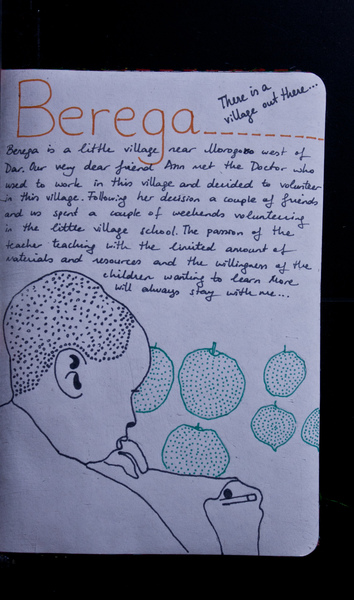 Berega
There is a
village out there...
Berega is a little village near Morogoro west of
Dar. Our very dear friend Ann met the Doctor who
used to work in this village and decided to volunteer
in this village. Following her decision a couple of friends
and us spent a couple of weekends volunteering
in the little village school. The passion of the
teacher teaching with the limited amount of
materials and resources and the willingness of the
children wanting to learn more
will always stay with me...